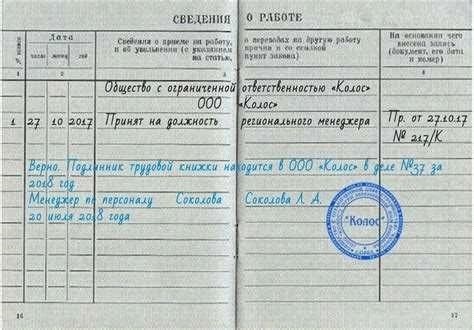 СВЕДЕНИЯ О РАБОТЕ
№ записи
Дата
число месяц год
Сведения о приеме на работу, о переводах на другую работу
и об увольнении (с указанием причин и со ссылкой
на статью, пункт закона)
На основании чего
внесена запись
(документ, его дата
и номер)
1 2 3 4
Общество с ограниченной ответственностью «Колос»
ООО «Колос»
1 27 10 2017 Принят на должность регионального менеджера Пр. от 27.10.17
№ 217/К
Верно. Подлинник трудовой книжки находится в ООО «Колос» в деле №37 за
2018 год
Менеджер по персоналу Соколова Соколова Л. А.
20 июля 2018 года
"Колос"
16 17